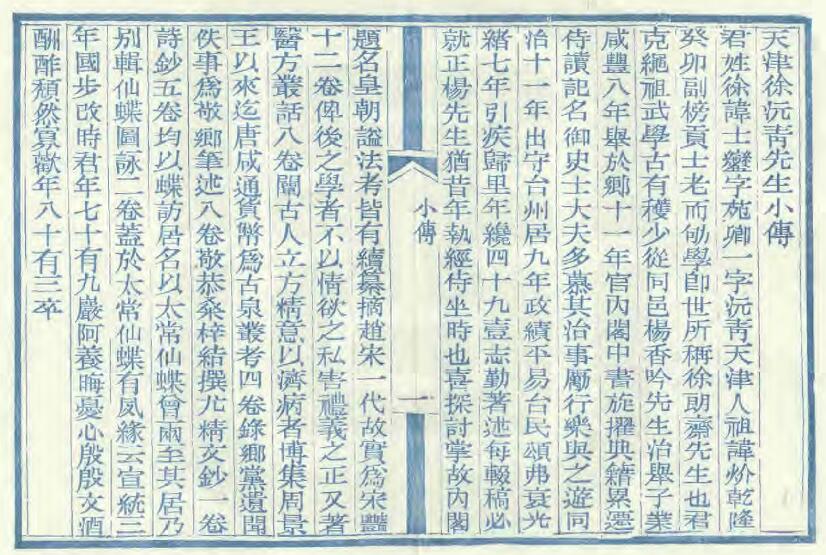 天津徐沅青先生小傳
君姓徐諱士鑾字苑卿一字沅青天津人祖諱炘乾隆
癸卯副榜貢士老而劬學卽世所稱徐朗齋先生也君
克繩祖武學古有穫少從同邑楊香吟先生治舉子業
咸豐八年舉於鄉十一年官內閣中書旋擢典籍累遷
侍讀記名御史士大夫多慕其治事勵行樂與之遊同
治十一年出守台州居九年政績平易台民頌弗衰光
緒七年引疾歸里年纔四十九壹志勤著述每輟稿必
就正楊先生猶昔年執經侍坐時也喜探討掌故內閣
小傳
一
題名皇朝謚法考皆有續纂摘趙宋一代故實爲宋豔
十二卷俾後之學者不以情欲之私害禮義之正又著
醫方叢話八卷闡古人立方精意以濟病者博集周景
王以來迄唐咸通貨幣爲古泉叢考四卷錄鄉黨遺聞
佚事爲敬鄉筆述八卷敬恭桑梓結撰尤精文鈔一卷
詩鈔五卷均以蝶訪居名以太常仙蝶曾兩至其居乃
別輯仙蝶圖詠二卷蓋於太常仙蝶有夙緣云宣統三
年國步改時君年七十有九巖阿養晦憂心殷殷文酒
酬酢頹然寡歡年八十有三卒